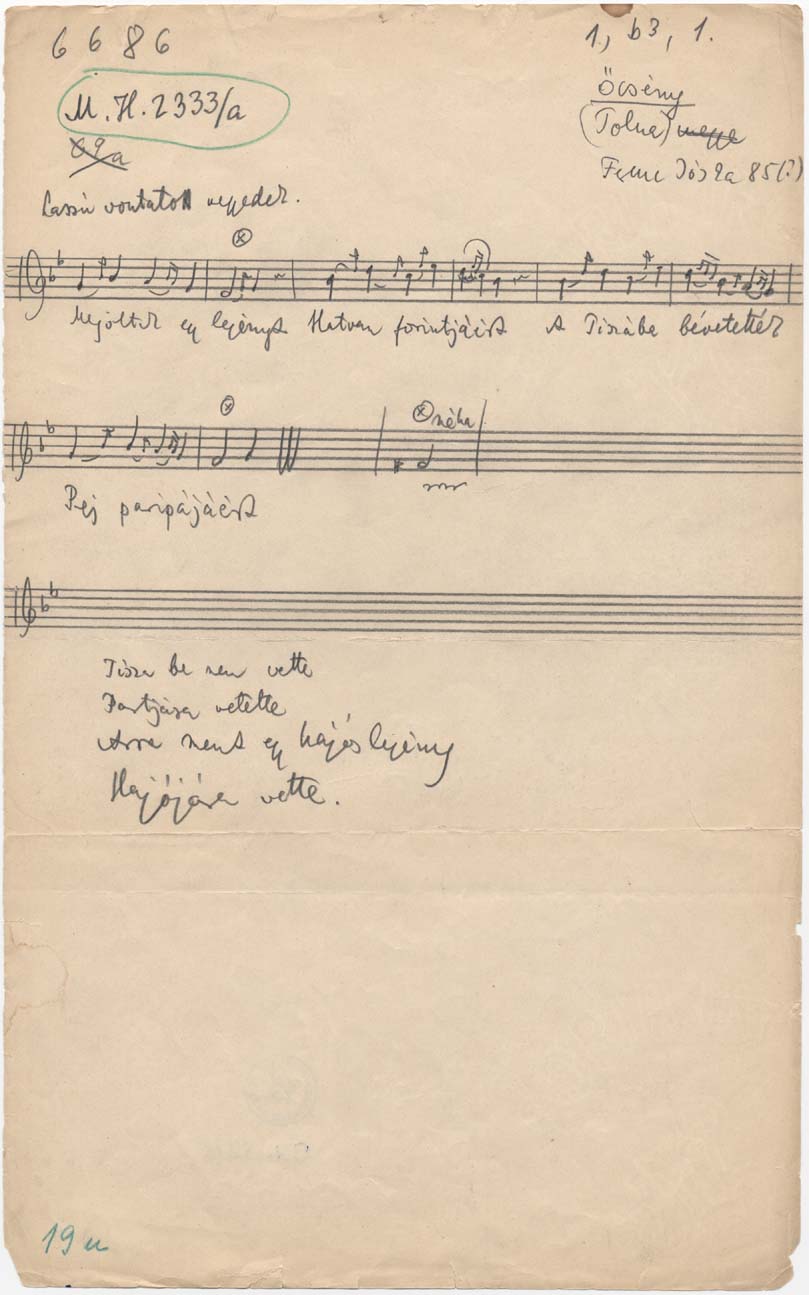 6 6 8 6
1, b3, 1.
M. H. 2333/a
Őcsény
(Tolna) megye
69a
Ferenc Józsa 85(?)
Lassú vontatott
Megöltek egy legényt Hatvan forintjáért A Tiszába bévetették
néha
Pej paripájáért
Tisza be nem vette
Partjára vetette
Arra ment egy hajóslegény
Hajójára vette.
19